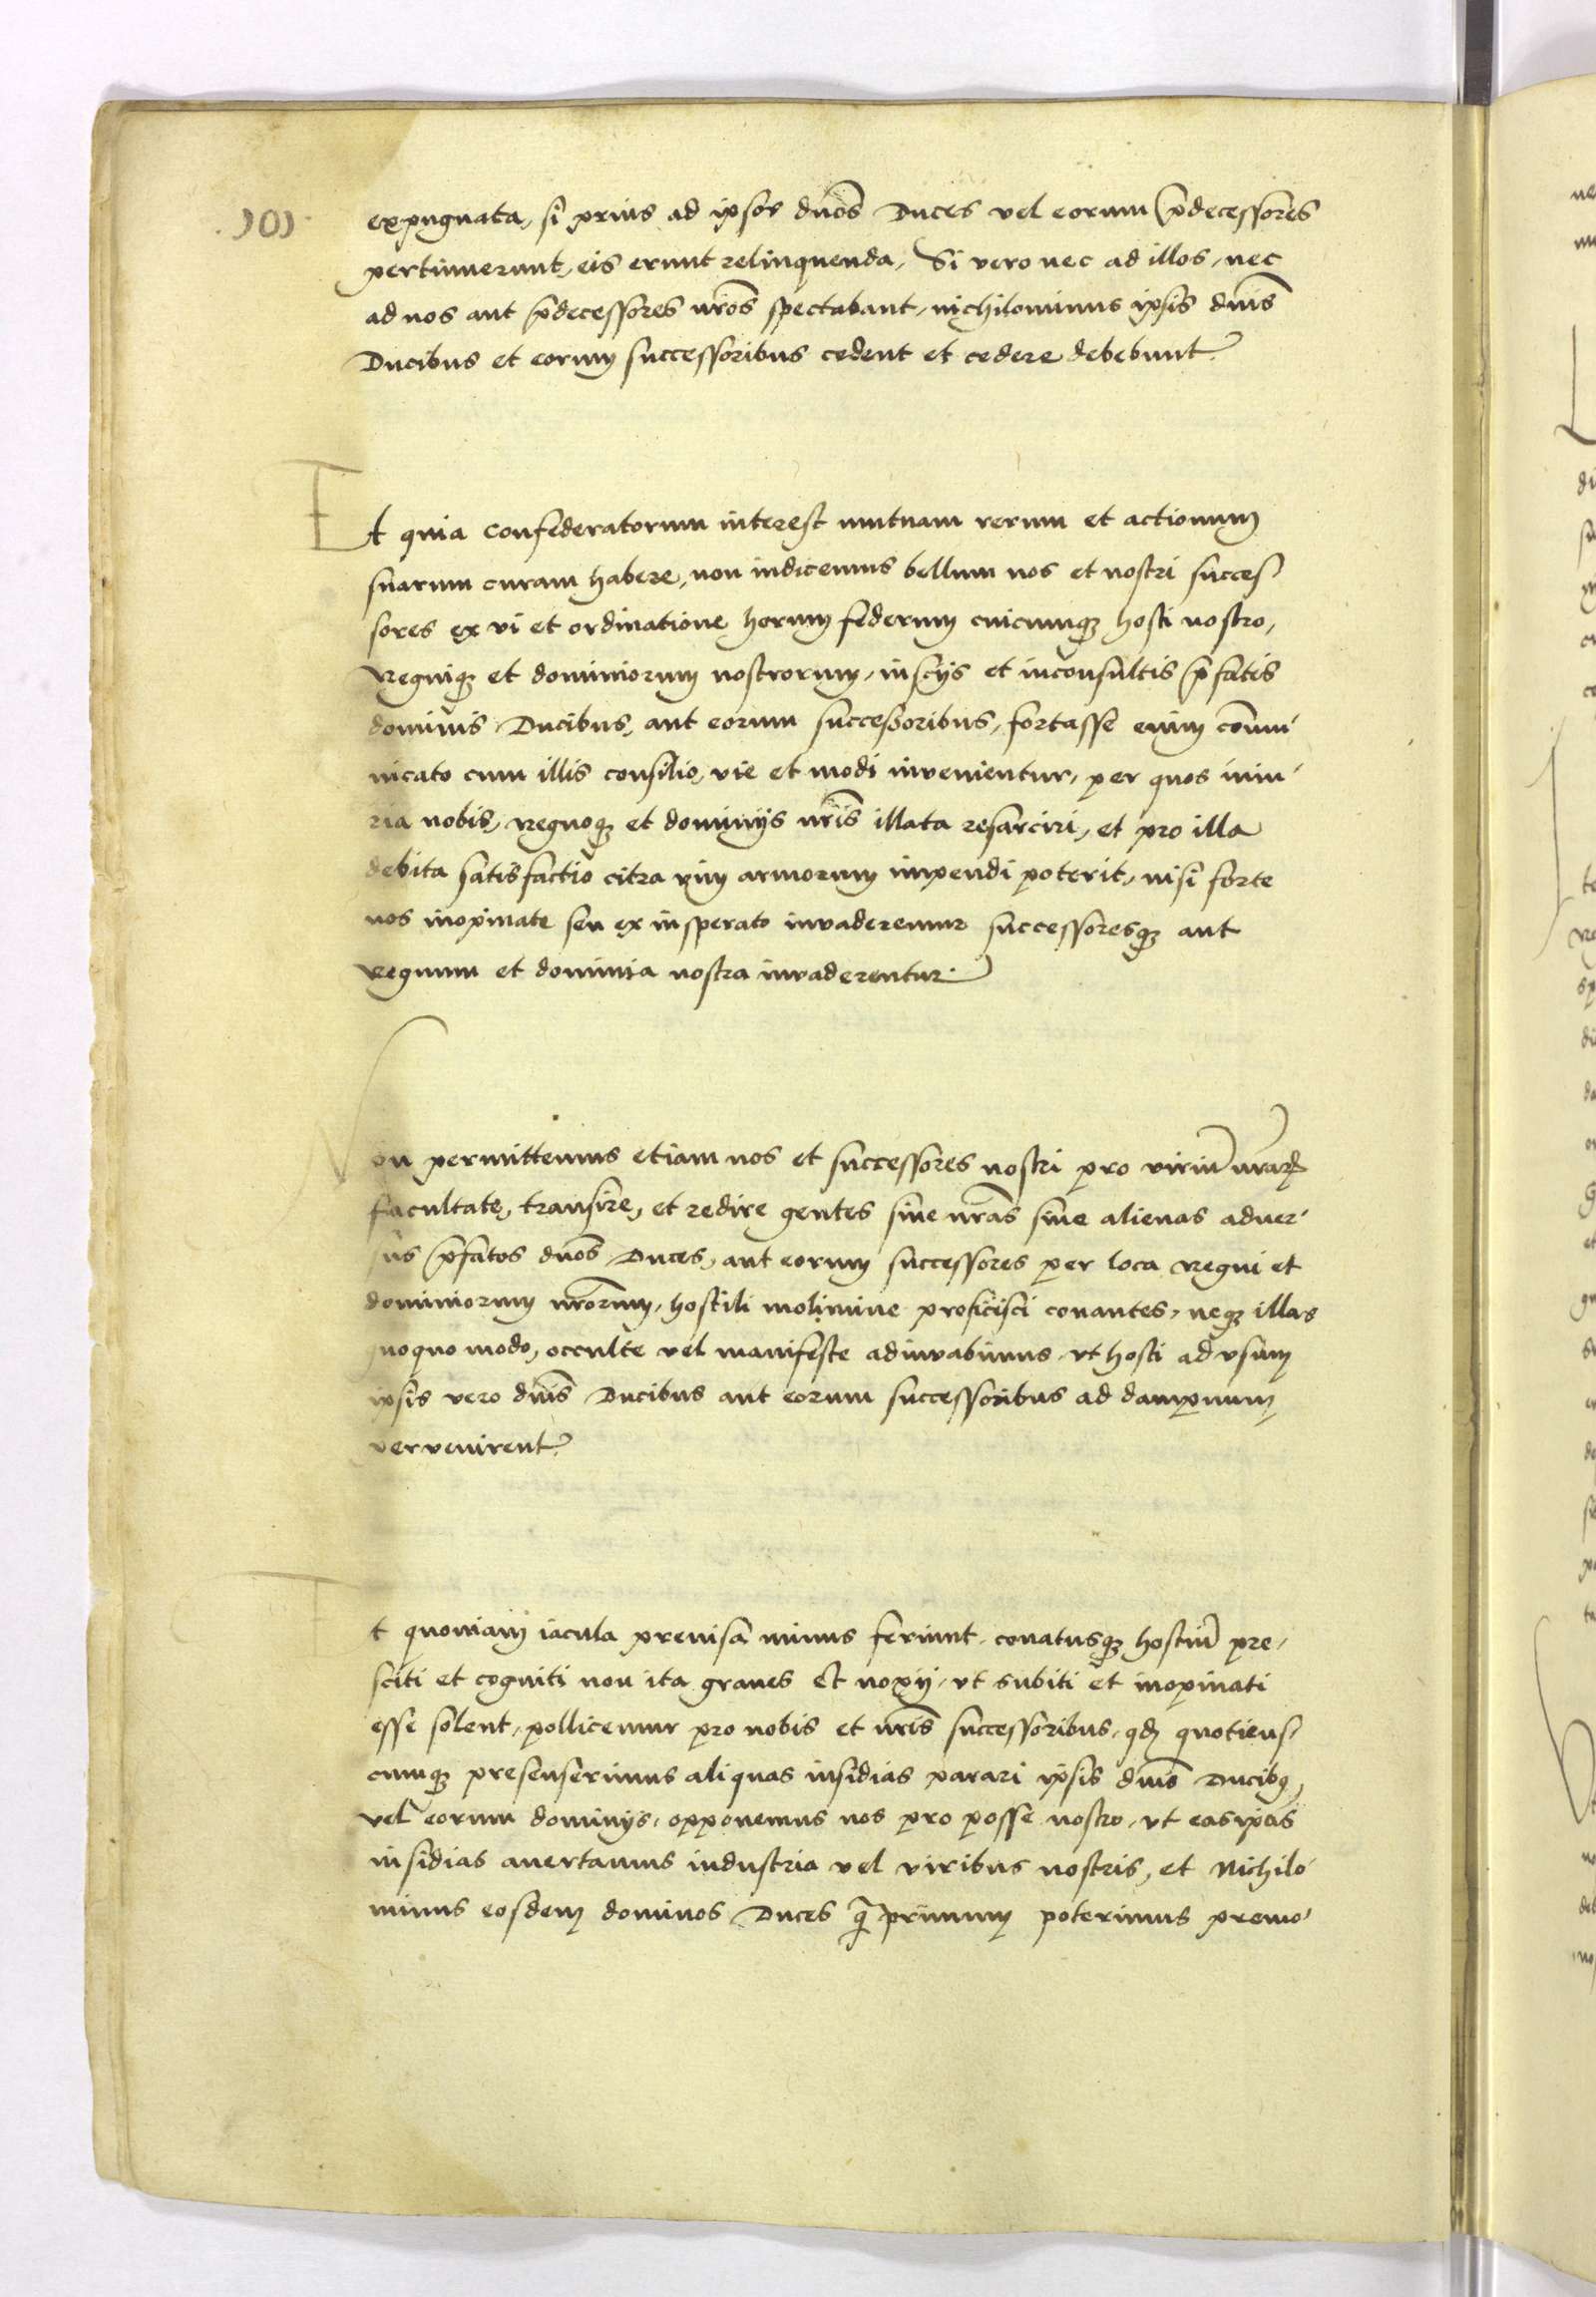 expugnata, si prius ad ipsos dnos Duces vel eorum p̄decessores
pertinuerunt, eis erunt relinquenda, Si vero nec ad illos, nec
ad nos aut p̄decessores nr̄os spectabant, nichilominus ipsis dnis
Ducibus et eorum successoribus cedent et cedere debebunt.
Et quia confederatorum interest mutuam rerum et actionum
suarum curam habere, non indicemus bellum nos et nostri succes
sores ex vi et ordinatione horum federum cuicumqꝫ hosti nostro,
Regniqꝫ et dominiorum nostrorum, inscijs et inconsultis p̄fatis
dominis Ducibus, aut eorum successoribus, fortasse enim com̄u
nicato cum illis consilio, vie et modi invenientur, per quos iniu
ria nobis, Regnoqꝫ et dominijs nr̄is illata resarciri, et pro illa
debita satisfactio citra vim armorum impendi poterit, nisi forte
nos inopinate seu ex insperato invaderemur successoresqꝫ aut
Regnum et dominia nostra invaderentur.
Non permittemus etiam nos et successores nostri pro viriū nr̄arꝝ
facultate, transire, et redire gentes siue nr̄as siue alienas aduer
sus p̄fatos dnos Duces, aut eorum successores per loca Regni et
dominiorum nr̄orum, hostili molimine proficisci conantes, neqꝫ illas
quoquo modo, occulte vel manifeste adiuvabimus, vt hosti ad vsum
ipsis vero dnis Ducibus aut eorum successoribus ad dampnum
pervenirent.
Et quoniam iacula previsa minus feriunt, conatusqꝫ hostiū pre
sciti et cogniti non ita graues et noxij, vt subiti et inopinati
esse solent, pollicemur pro nobis et nr̄is successoribus, qđ quotiens
cumqꝫ presenserimus aliquas insidias parari ipsis dnis Ducibꝰ,
vel eorum dominijs, opponemus nos pro posse nostro, vt eas ip̄as
insidias auertamus industria vel viribus nostris, et Nichilo
minus eosdem dominos Duces q̄ primum poterimus premo